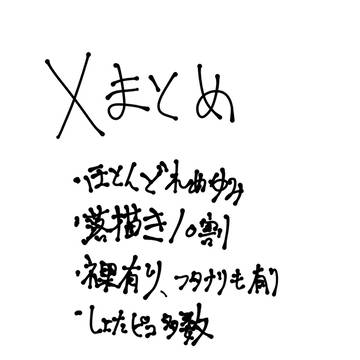 Xまとめ
・ほとんどれめゆみ
・落描き10割
・裸有り、フタナリも有り
・しょたピコ多数